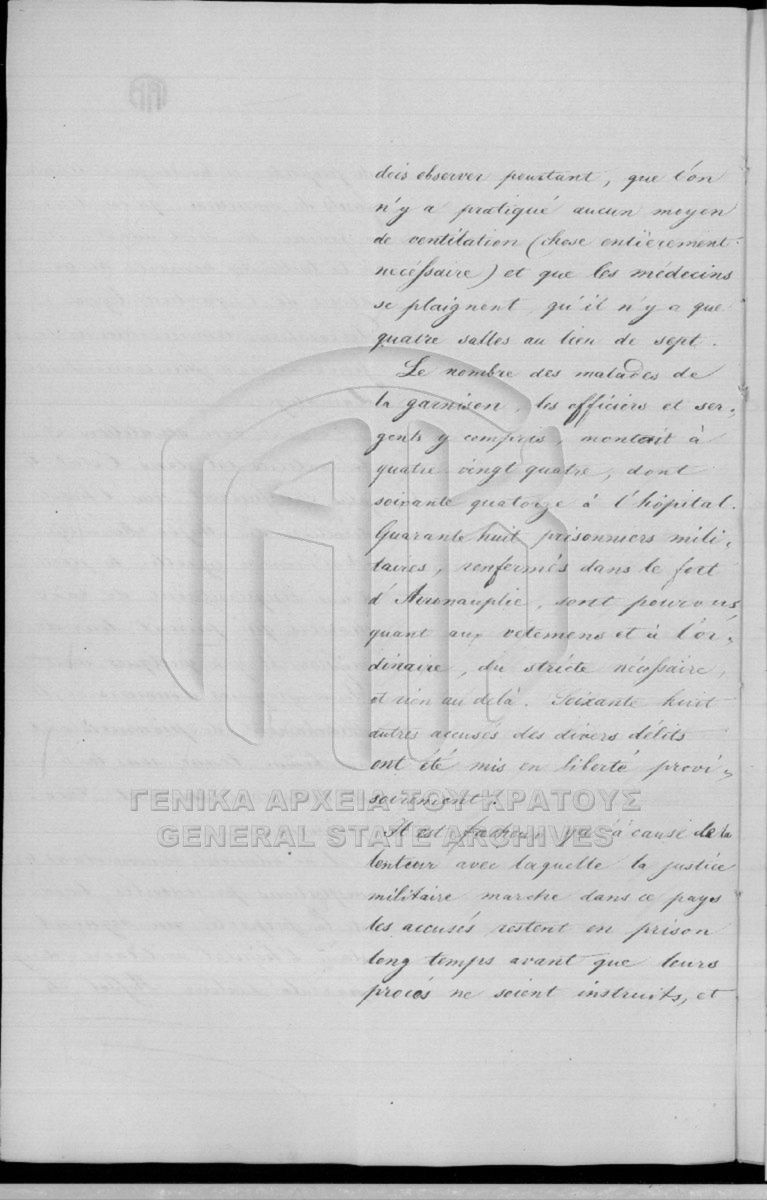 dois observer pourtant, que l'on
n'y a pratiqué aucun moyen
de ventilation (chose entièrement
nécessaire) et que les médecins
se plaignent qu'il n'y a que
quatre salles au lieu de sept.
Le nombre des malades de
la garnison, les officiers et ser-
gents y compris, montait à
quatre vingt quatre, dont
soixante quatorze à l'hôpital.
Quarante huit prisonniers mili-
taires, renfermés dans le fort
d'Acronauplie, sont pourvus
quant aux vetemens et à l'or-
dinaire, du stricte nécessaire,
et rien au delà. Soixante huit
autres accusés des divers délits
ont été mis en liberté provi-
soirement.
ΓΕΝΙΚΑ ΑΡΧΕΙΑ ΤΟΥ ΚΡΑΤΟΥΣ
GENERAL STATE ARCHIVES
Il est facheux qu'à cause de la
lenteur avec laquelle la justice
militaire marche dans ce pays
les accusés restent en prison
long temps avant que leurs
procès ne soient instruits, et